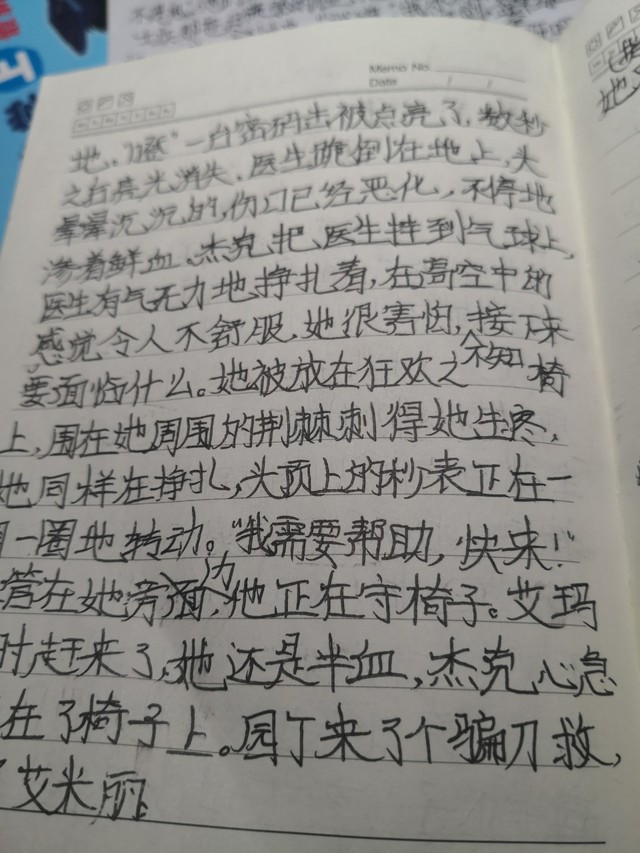 Memo No.
Date / /
地。"哒"一台密码击被点亮了,数秒
之后亮光消失,医生跪倒在地上,头
晕晕沉沉的,伤口已经恶化,不停地
渗着鲜血。杰克把医生挂到气球上,
医生有气无力地挣扎着,在高空中的
感觉令人不舒服,她很害怕,接下来
要面临什么。她被放在狂欢之椅
不知
上,围在她周围的荆棘刺得她生疼,
她同样在挣扎,头顶上的秒表正在一
一圈地转动。"我需要帮助,快来!"
管在她旁边,他正在守椅子。艾玛
时赶来了,她还是半血,杰克心急
在了椅子上。园丁来了个骗刀救,
艾米丽